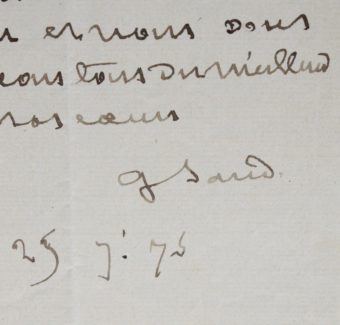 et nous vous
tous du meilleur
nos cœurs
G Sand
25 j. 75